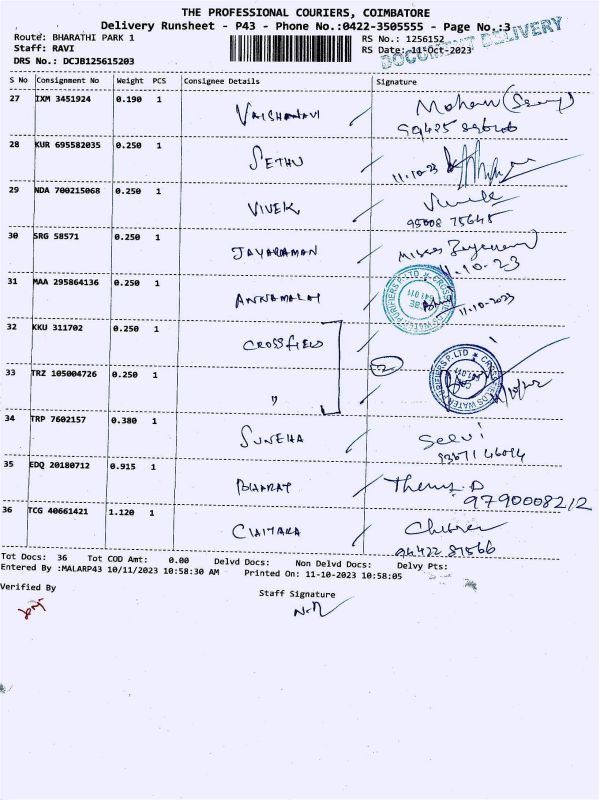 THE PROFESSIONAL COURIERS, COIMBATORE
Delivery Runsheet - P43 - Phone No.:0422-3505555 - Page No.:3
Route: BHARATHI PARK 1
RS No.: 1256152
DOCUMENT DELIVERY
Staff: RAVI
RS Date: 11-Oct-2023
DRS No.: DCJB125615203
S No Consignment No Weight PCS Consignee Details Signature
27 IXM 3451924 0.190 1 VAISHANAVI Mohan
28 KUR 695582035 0.250 1 SETHU 11-10-23
29 NDA 700215068 0.250 1 VIVEK
95008 75645
30 SRG 58571 0.250 1 JAYARAMAN
11-10-23
31 MAA 295864136 0.250 1 ANNAMALAI 11-10-2023
32 KKU 311702 0.250 1 CROSSFIELD
33 TRZ 105004726 0.250 1 "
CROSSFIELDS WATER PURIFIERS P. LTD
34 TRP 7602157 0.380 1 SUNEHA Selvi
35 EDQ 20180712 0.915 1 BHARAT
9790008212
36 TCG 40661421 1.120 1
94422 81566
Tot Docs: 36 Tot COD Amt: 0.00 Delvd Docs: Non Delvd Docs: Delvy Pts:
Entered By :MALARP43 10/11/2023 10:58:30 AM Printed On: 11-10-2023 10:58:05
Verified By
Staff Signature